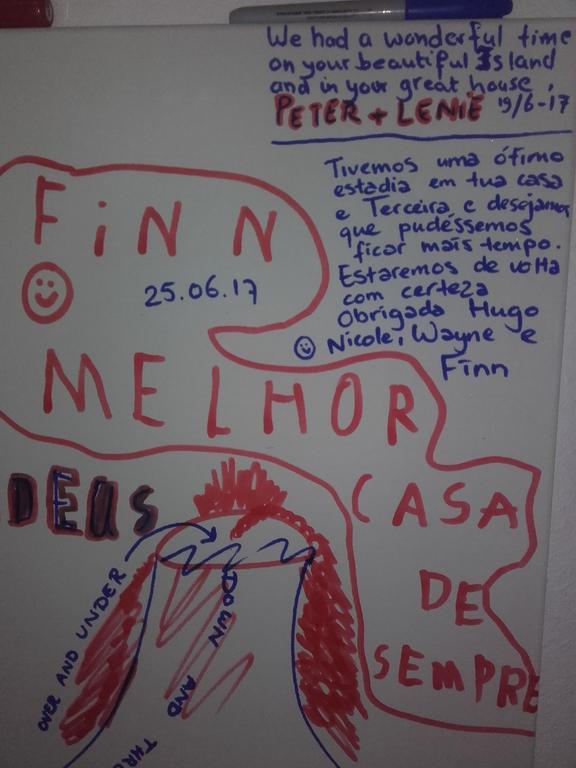 We had a wonderful time
on your beautiful Island
and in your great house,
PETER + LENIE 19/6-17
Tivemos uma ófimo
estadia em tua casa
e Terceira, e desejamos
que pudéssemos
ficar mais tempo.
Estaremos de volta
com certeza
Obrigada Hugo
☺ Nicole, Wayne e
Finn
FiNN
25.06.17
MELHOR
CASA
DE
SEMPRE
DEUS
OVER AND UNDER
DOWN
AND
THR